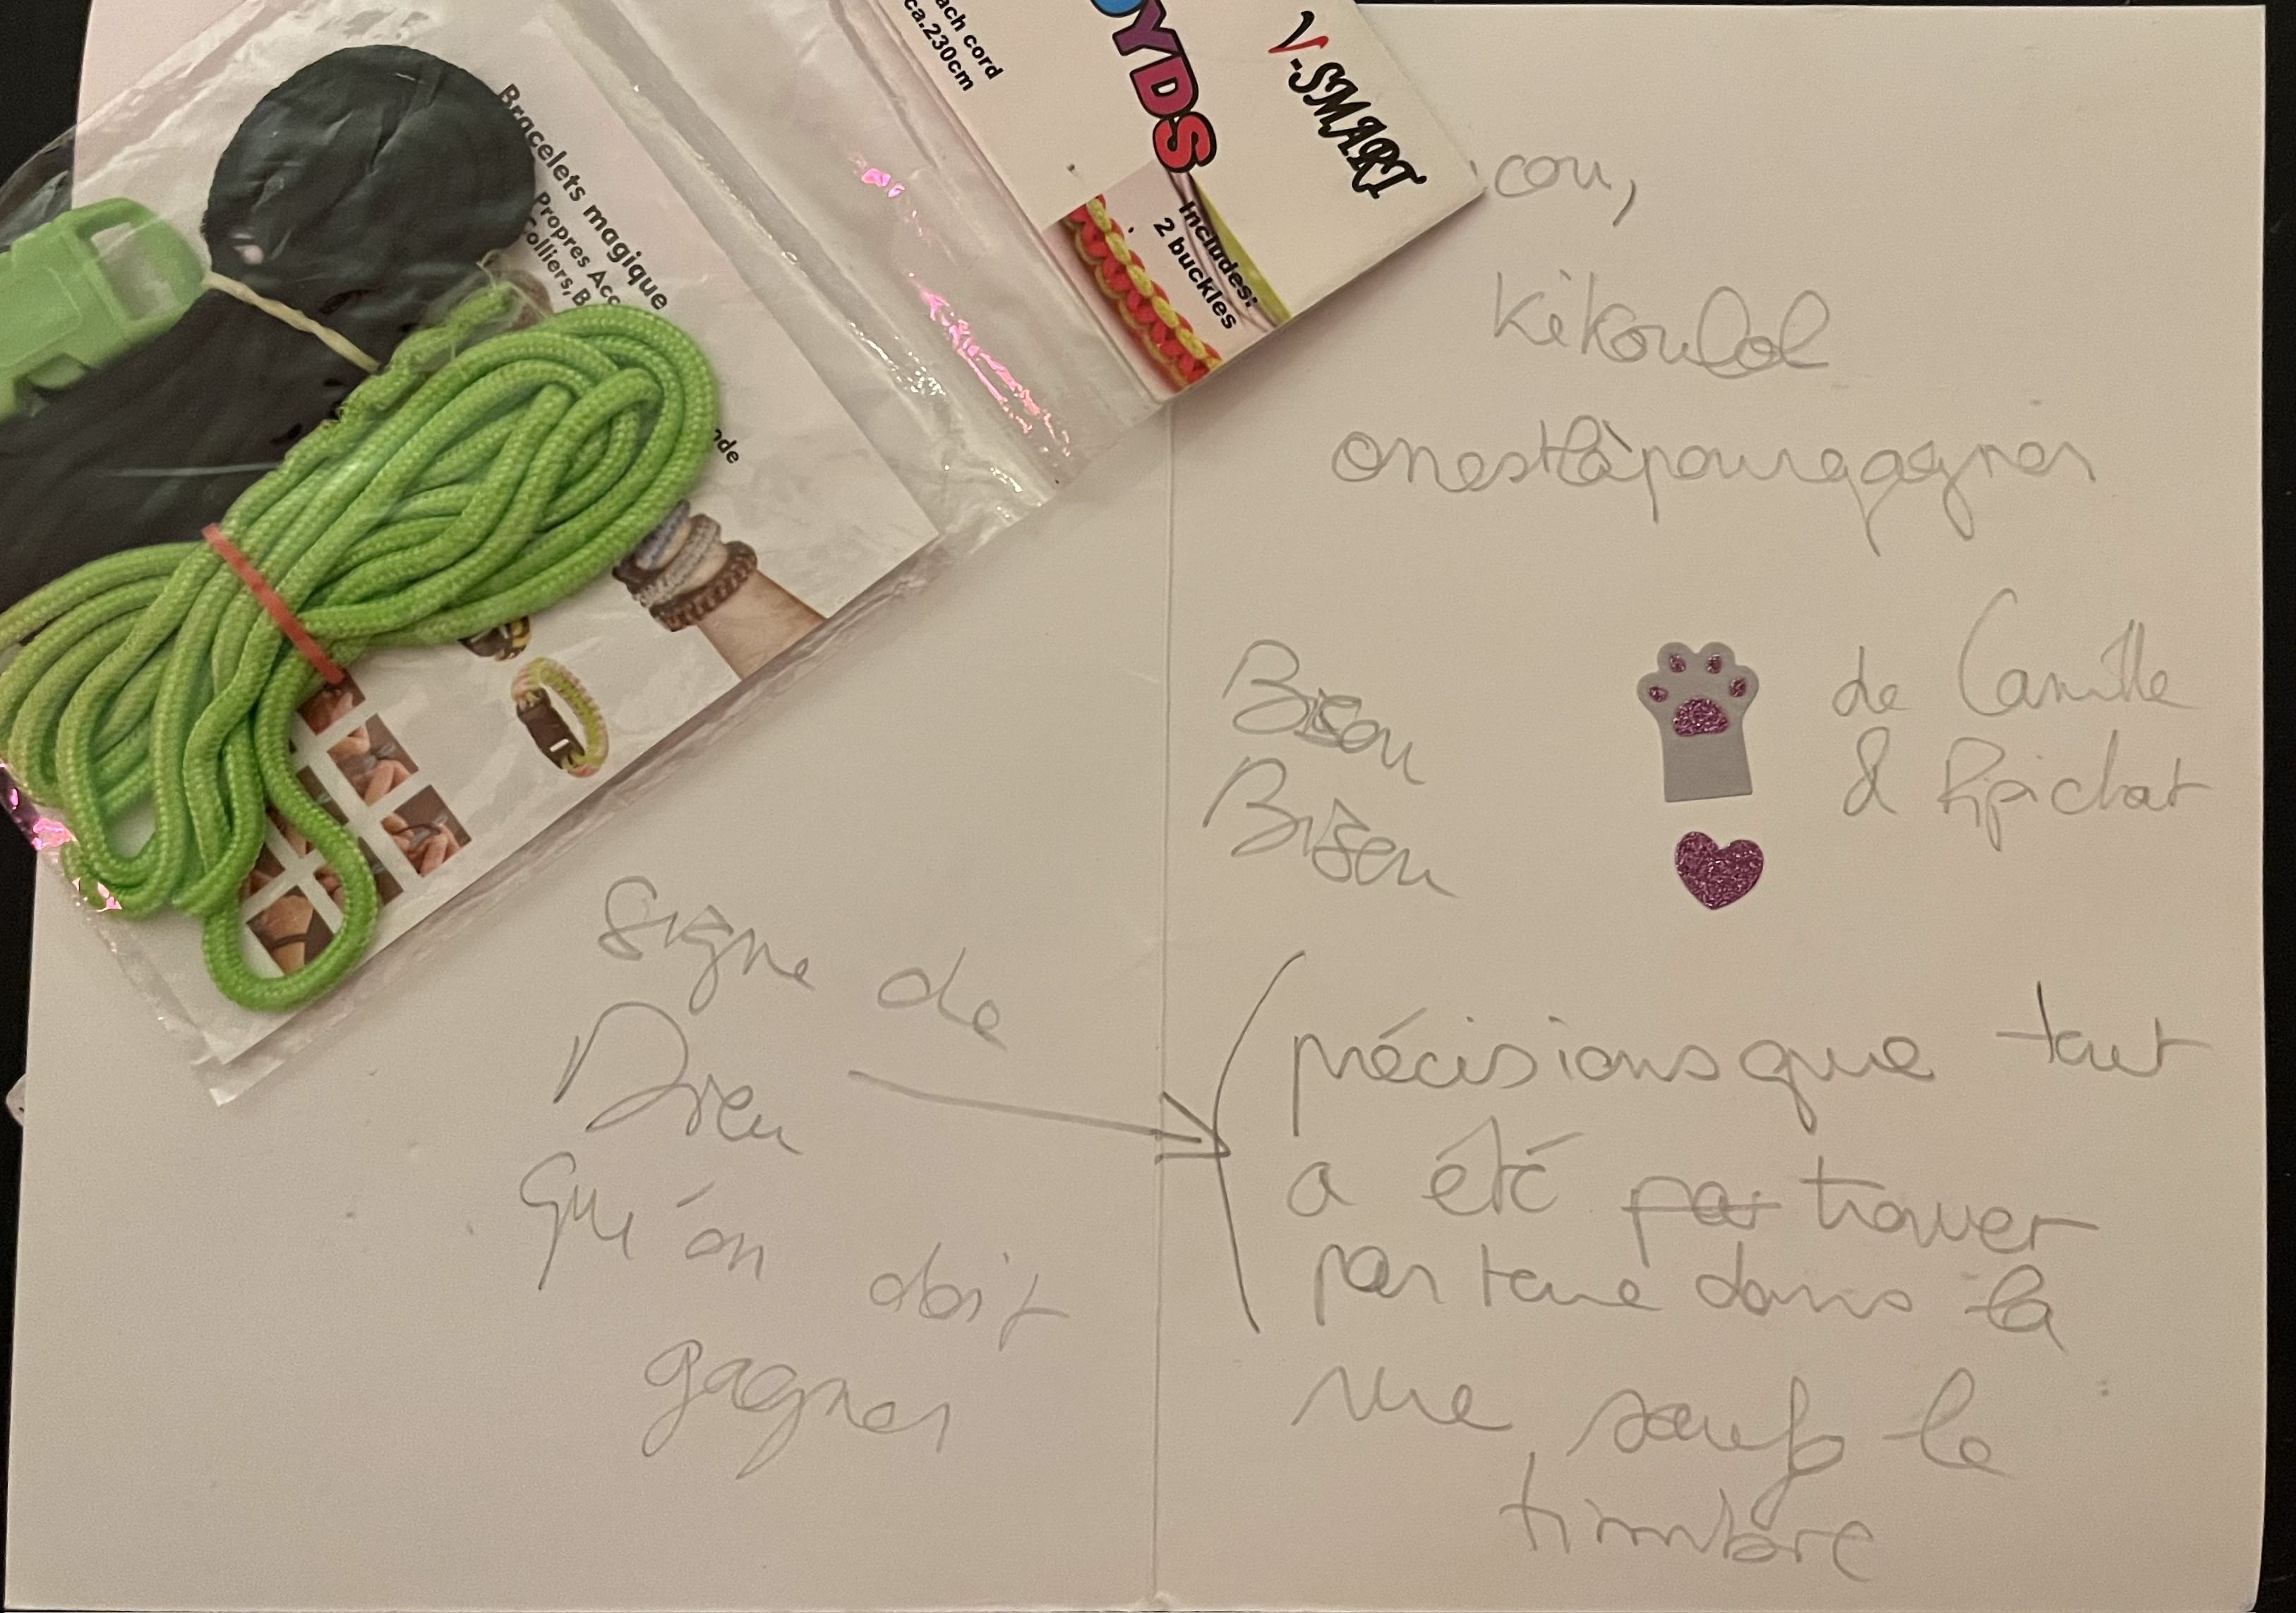 ach cord
ca.230cm
OYDS
V-SMART
Includes:
2 buckles
Bracelets magique
Propres Acc
Colliers,B
ode
cou,
Kikoulol
onestlàpourgagner
Bisou
Bisou
de Camille
& Ripichat
signe de
Dieu
qu'on doit
gagner
(précisions que tout
a été par trouver
par terre dans la
rue sauf le
timbre